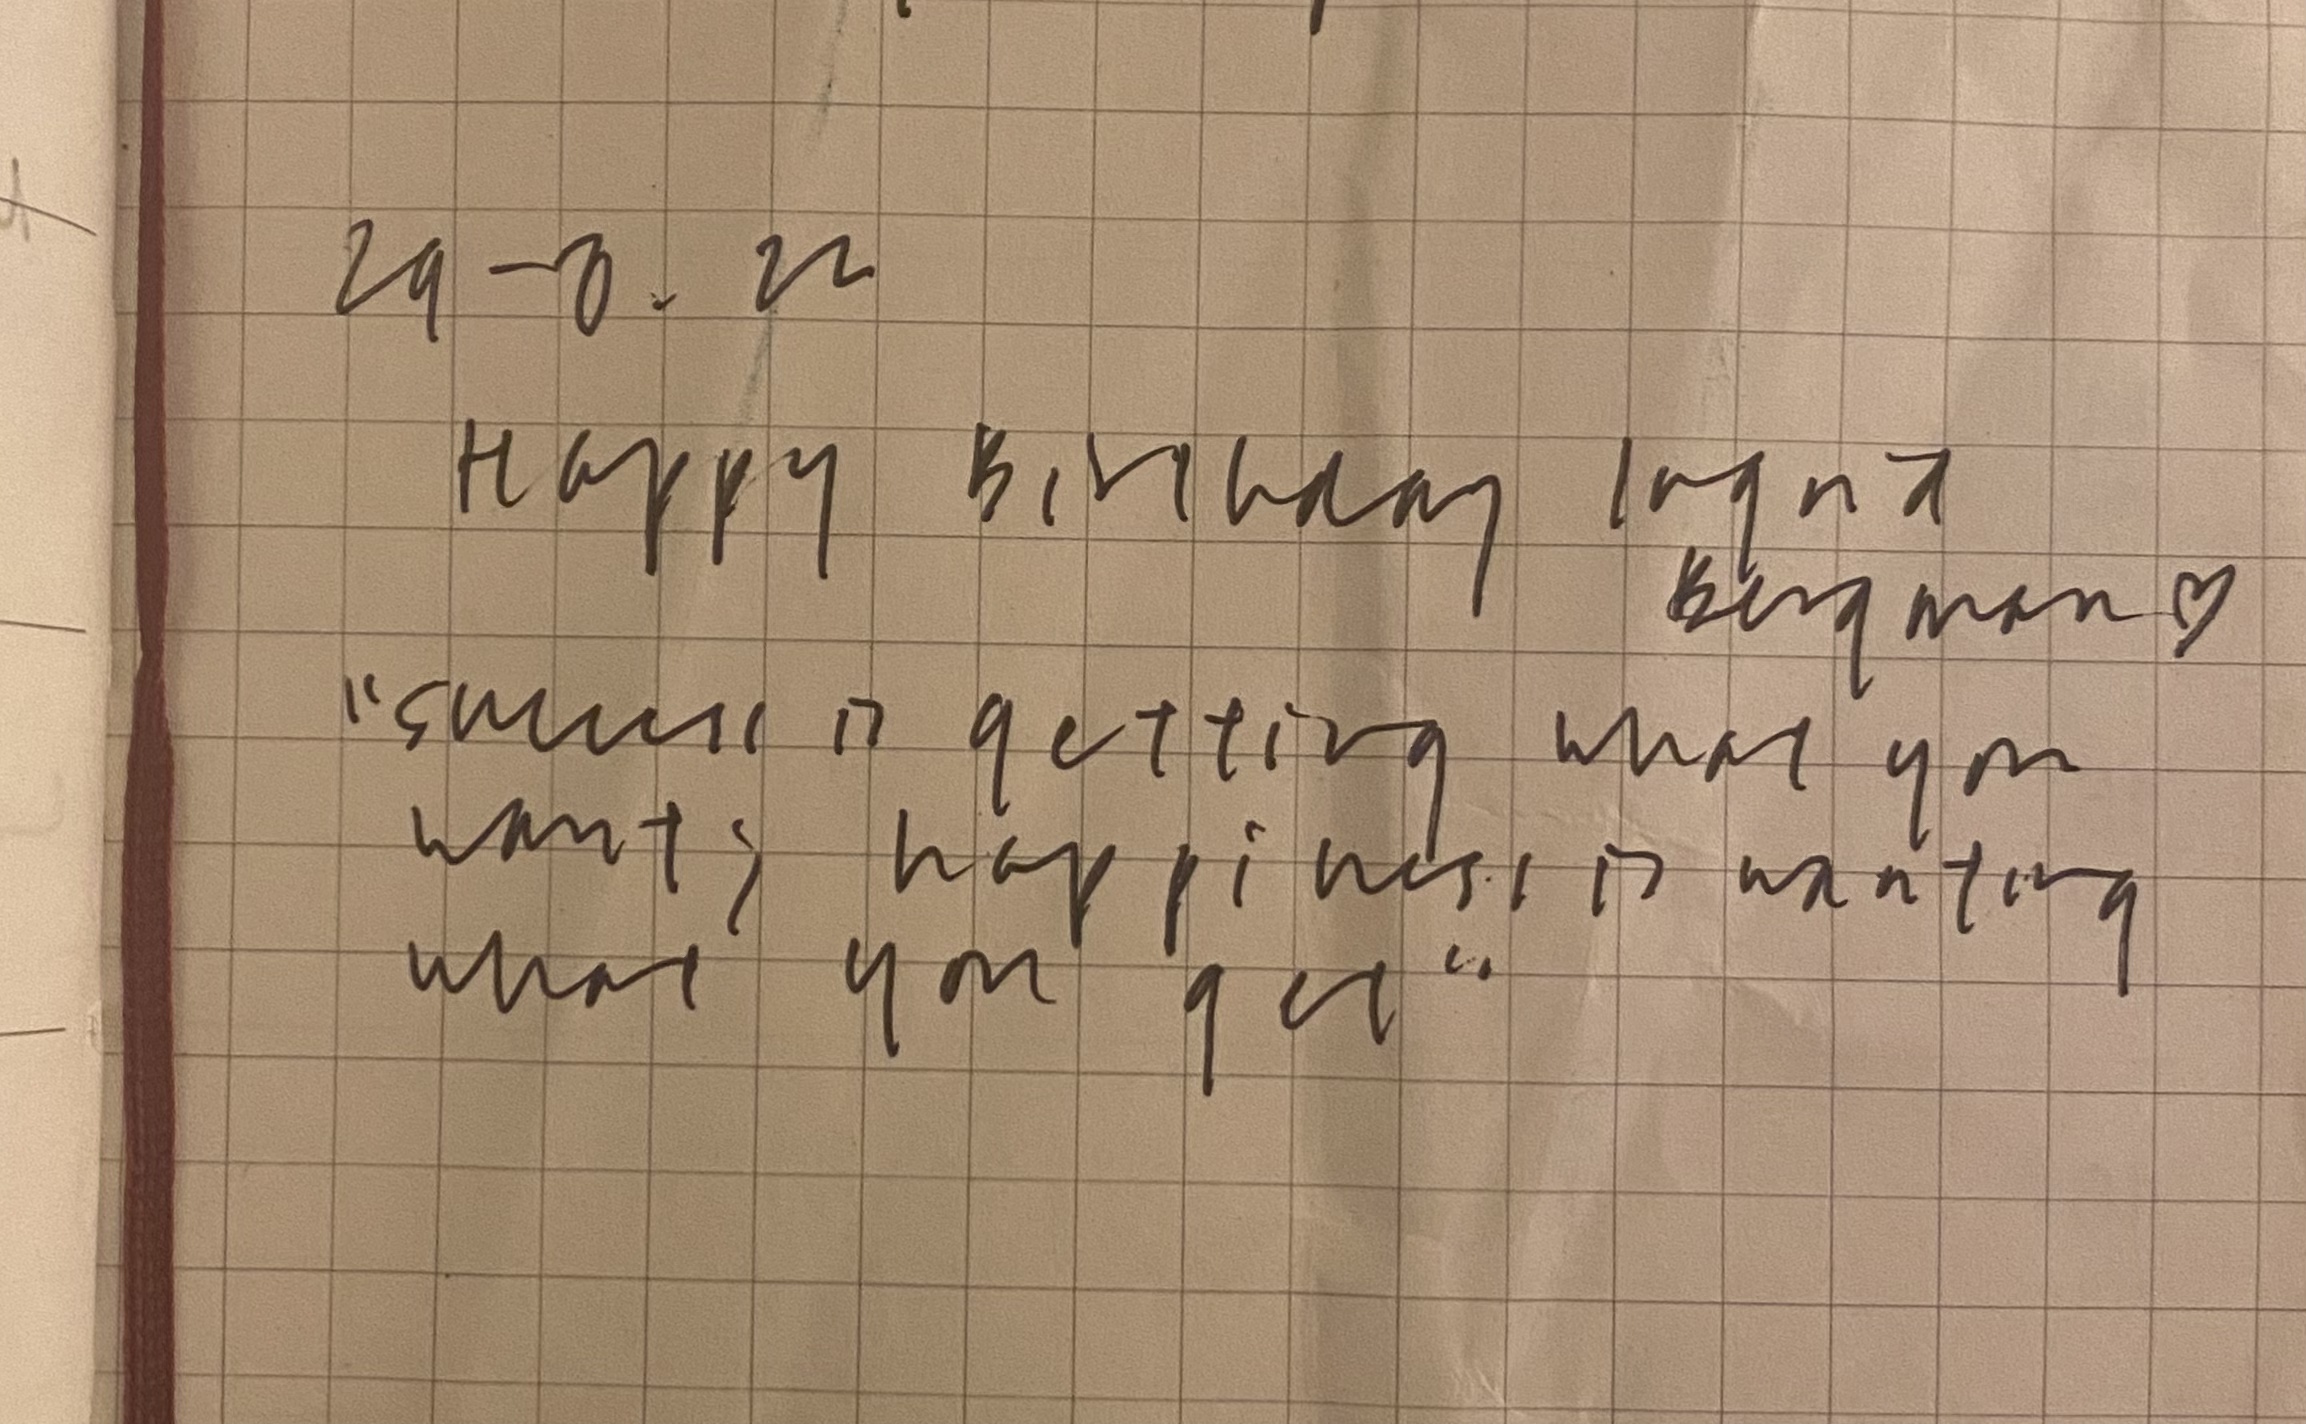 29-8. 22
Happy Birthday Ingrid
Bergman♡
"success is getting what you
want; happiness is wanting
what you get"